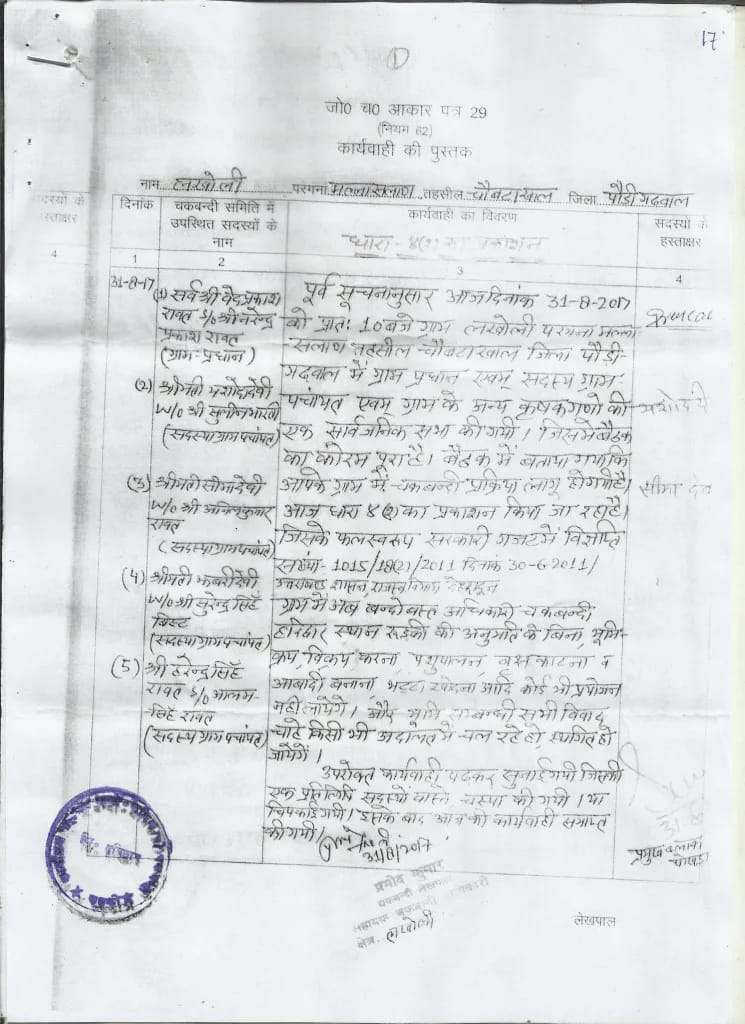 17
1
जो0 च0 आकार पत्र 29
(नियम 62)
कार्यवाही की पुस्तक
नाम लखोली परगना मल्लासलाण तहसील चौबटाखाल जिला पौड़ीगढवाल
सदस्यों के हस्ताक्षर
दिनांक
चकबन्दी समिति में उपस्थित सदस्यों के नाम
कार्यवाही का विवरण
धारा - 4(2) का प्रकाशन
सदस्यों के हस्ताक्षर
4
1
2
3
4
31-8-17
(1) सर्व श्री वेदप्रकाश
रावत S/o श्री नरेन्द्र
प्रकाश रावत
(ग्राम-प्रधान)
(2) श्रीमती यशोदादेवी
W/o श्री सुनील भारती
(सदस्या ग्राम पंचायत)
(3) श्रीमती सीमादेवी
W/o श्री अनिलकुमार
रावत
(सदस्या ग्राम पंचायत)
(4) श्रीमती झबरीदेवी
W/o श्री सुरेन्द्र सिंह
बिष्ट
(सदस्या ग्राम पंचायत)
(5) श्री हरेन्द्र सिंह
रावत S/o आलम-
सिंह रावत
(सदस्य ग्राम पंचायत)
पूर्व सूचनानुसार आज दिनांक 31-8-2017
को प्रात: 10 बजे ग्राम लखोली परगना मल्ला
सलाण तहसील चौबटाखाल जिला पौड़ी-
गढवाल में ग्राम प्रधान एवम् सदस्य ग्राम-
पंचायत एवम् ग्राम के अन्य कृषकगणो की
एक सार्वजनिक सभा की गयी। जिसमे बैठक
का कोरम पूरा है। बैठक में बताया गया कि
आपके ग्राम में चकबन्दी प्रक्रिया लागू होगयी है।
आज धारा 4(2) का प्रकाशन किया जा रहा है।
जिसके फलस्वरुप सरकारी गजट में विज्ञप्ति
संख्या- 1015/18(2)/2011 दिनांक 30-6-2011/
उत्तराखण्ड शासन, राजस्व विभाग देहरादून
ग्राम में अब बन्दोबस्त अधिकारी चकबन्दी
हरिद्वार स्थान रुड़की की अनुमति के बिना, भूमि-
क्रय, विक्रय करना, पशुपालन, वृक्ष काटना व
आबादी बनाना, भट्टा खोदना आदि कोई भी प्रयोजन
नही लायेंगे। और भूमि सम्बन्धी सभी विवाद
चाहे किसी भी अदालत में चल रहे हो, स्थगित हो
जायेंगें।
उपरोक्त कार्यवाही पढकर सुनाई गयी जिसकी
एक प्रतिलिपि सदस्यों वास्ते चस्पा की गयी। या
चिपकाई गयी। इसके बाद आज की कार्यवाही समाप्त
की गयी।
31/8/2017
यशोदा दे
सीमा देव
प्रमोद कुमार
चकबन्दी लेखपाल
सहायक चकबन्दी अधिकारी
क्षेत्र. लखोली
लेखपाल